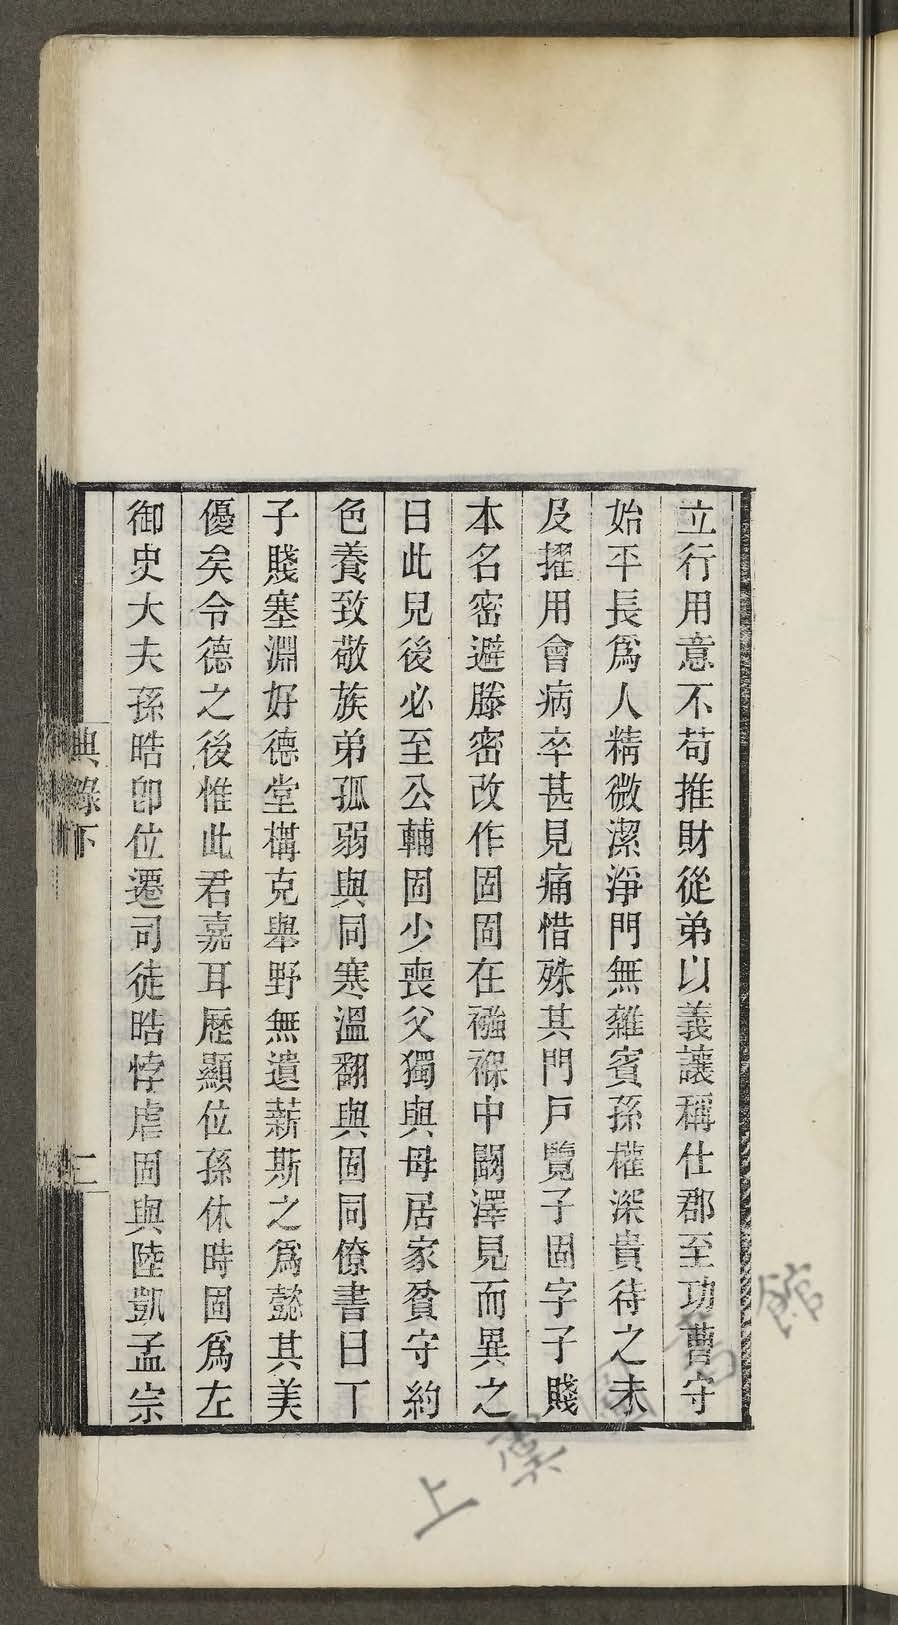 立行用意不苟推財從弟以義讓稱仕郡至功曹守
始平長爲人精微潔淨門無雜賓孫權深貴待之未
及擢用會病卒甚見痛惜殊其門戶覽子固字子賤
本名密避滕密改作固固在襁褓中闞澤見而異之
曰此兒後必至公輔固少喪父獨與母居家貧守約
色養致敬族弟孤弱與同寒溫翻與固同僚書曰丁
子賤塞淵好德堂構克舉野無遺薪斯之爲懿其美
優矣令德之後惟此君嘉耳歷顯位孫休時固爲左
御史大夫孫晧卽位遷司徒晧悖虐固與陸凱孟宗
典錄下
二
上虞圖書館